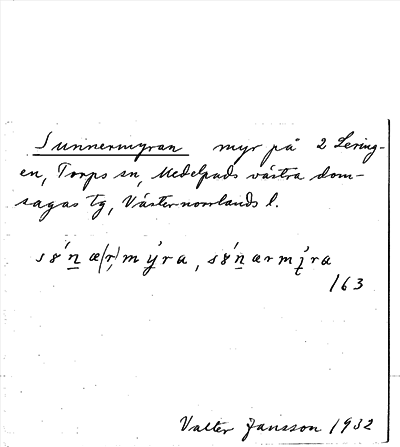 Sunnermyran myr på 2 Lering-
en, Torps sn, Medelpads västra dom-
sagas tg, Västernorrlands l.
s8́n̲æ(r̥)mý̲ra, s8́n̲ærmí̲ra
/63
Valter Jansson 1932